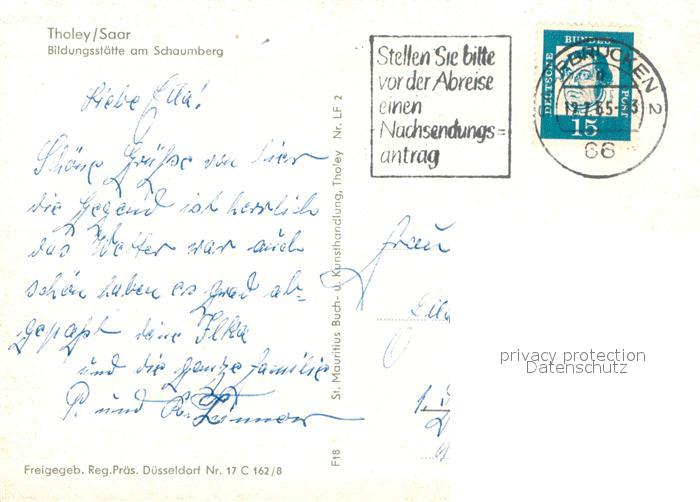 Tholey/Saar
Bildungsstätte am Schaumberg
Liebe Ella!
Schöne Grüße von hier
die Gegend ist herrlich
das Wetter war auch
schön haben es grad ab-
gepaßt deine Ilka
und die ganze Familie
P. und
Freigegeb. Reg.Präs. Düsseldorf Nr. 17 C 162/8
F18 St. Mauritius Buch- u. Kunsthandlung, Tholey Nr. LF 2
Stellen Sie bitte
vor der Abreise
einen
Nachsendungs=
antrag
DEUTSCHE BUNDES POST
15
BRÜCKEN 2
65-
66
Frau
privacy protection
Datenschutz